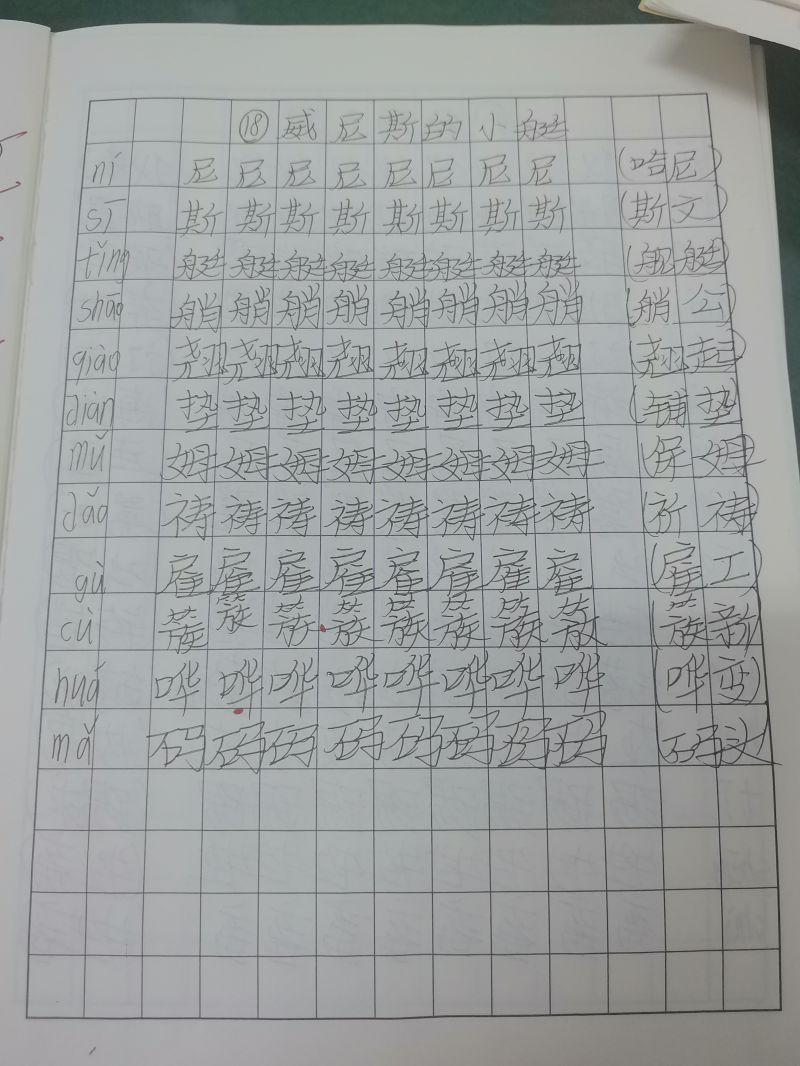 ⑱威尼斯的小艇
ní 尼尼尼尼尼尼尼尼 (哈尼)
sī 斯斯斯斯斯斯斯斯 (斯文)
tǐng 艇艇艇艇艇艇艇艇 (舰艇)
shāo 艄艄艄艄艄艄艄艄 (艄公)
qiào 翘翘翘翘翘翘翘翘 (翘起)
diàn 垫垫垫垫垫垫垫垫 (铺垫)
mǔ 姆姆姆姆姆姆姆姆 (保姆)
dǎo 祷祷祷祷祷祷祷祷 (祈祷)
gù 雇雇雇雇雇雇雇雇 (雇工)
cù 簇簇簇簇簇簇簇簇 (簇新)
huá 哗哗哗哗哗哗哗哗 (哗变)
mǎ 码码码码码码码码 码头